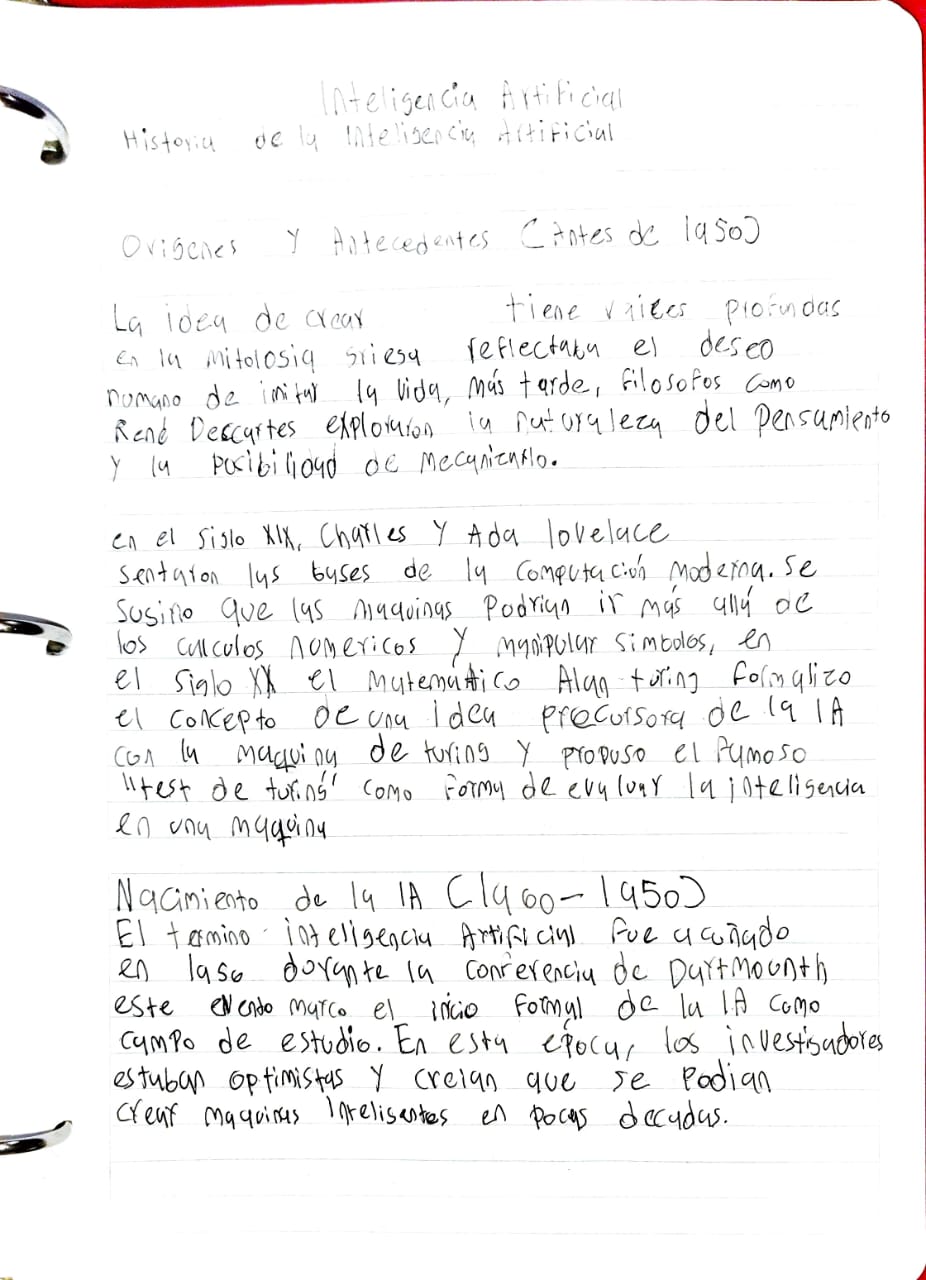 Inteligencia Artificial
Historia de la Inteligencia Artificial
Origenes Y Antecedentes (Antes de 1950)
La idea de crear tiene raices profundas
en la mitologia griega reflectaba el deseo
humano de imitar la vida, más tarde, filosofos como
René Descartes exploraron la naturaleza del Pensamiento
y la posibilidad de mecanizarlo.
en el Siglo XIX, Charles Y Ada lovelace
sentaron las bases de la computación moderna. Se
sugirio que las maquinas Podrian ir más allá de
los calculos numericos y manipular simbolos, en
el siglo XX el matemático Alan turing formalizo
el concepto de una idea precursora de la IA
con la maquina de turing y propuso el famoso
"test de turing" como forma de evaluar la inteligencia
en una maquina
Nacimiento de la IA (1960-1950)
El termino inteligencia Artificial fue acuñado
en 1956 durante la conferencia de Dartmounth
este marco el inicio formal de la IA como
campo de estudio. En esta época, los investigadores
estaban optimistas y creian que se Podian
crear maquinas Inteligentes en pocas decadas.